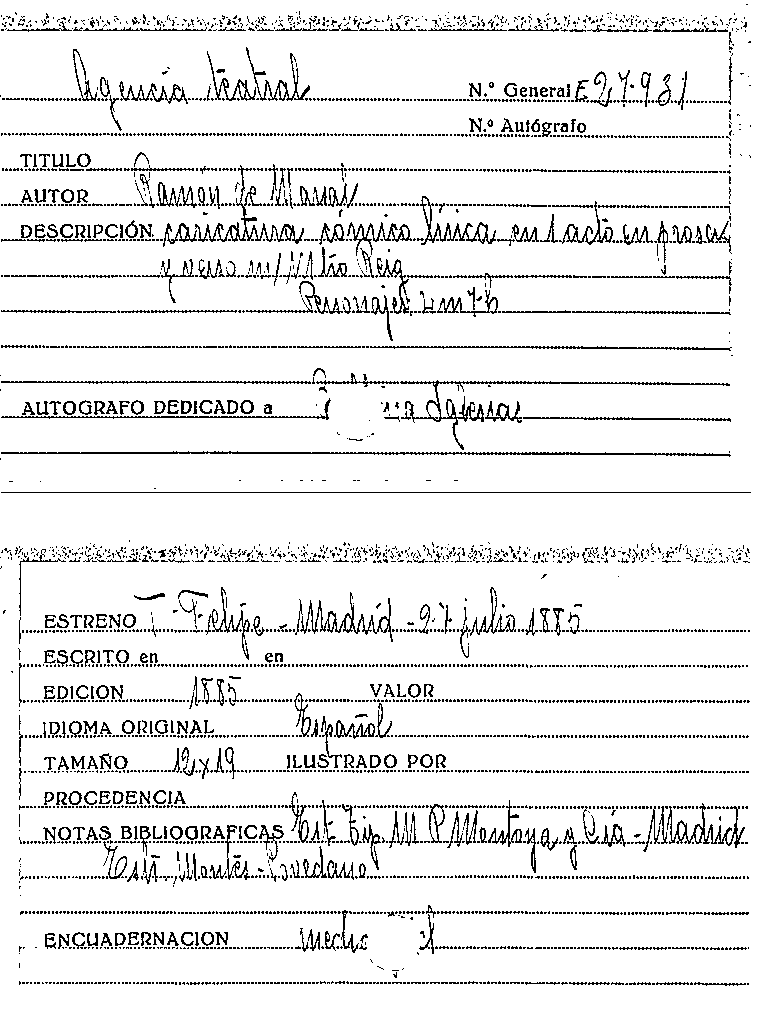 Agencia teatral
N.º General E 27.931
N.º Autógrafo
TITULO
AUTOR Ramón de Marsal
DESCRIPCIÓN caricatura cómico lírica en 1 acto en prosa
y verso m/ Mtro Reig
Personajes 2 m 7 h
AUTOGRAFO DEDICADO a Iglesias
ESTRENO T. Felipe - Madrid - 27 julio 1885
ESCRITO en en
EDICION 1885 VALOR
IDIOMA ORIGINAL Español
TAMAÑO 12x19 ILUSTRADO POR
PROCEDENCIA
NOTAS BIBLIOGRAFICAS Est. Tip. M P Montoya y Cía - Madrid
Estr. Montes - Povedano
ENCUADERNACION